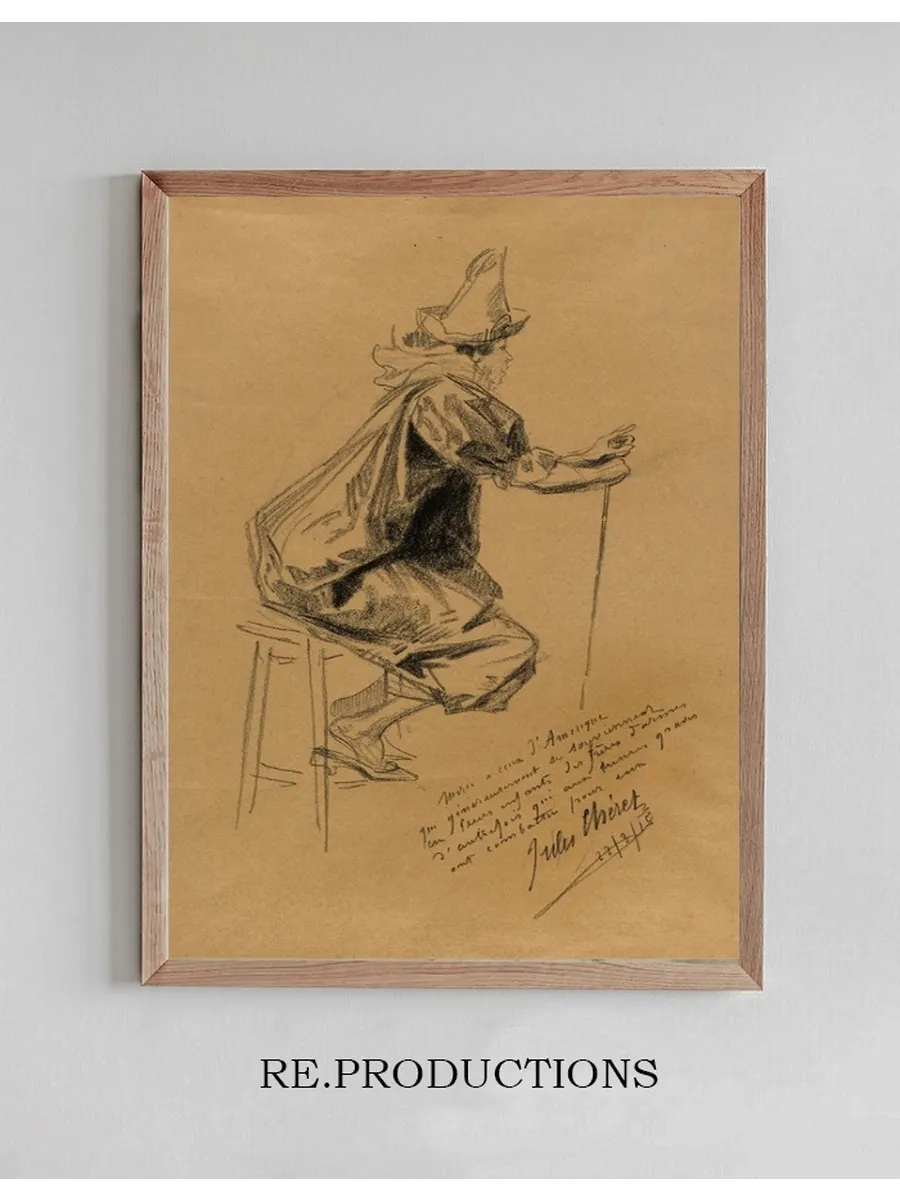 Merci a ceux d'Amérique
qui généreusement se souviennent
en leurs enfants des frères d'armes
d'autrefois qui aux heures graves
ont combattu pour eux
Jules Chéret
RE.PRODUCTIONS